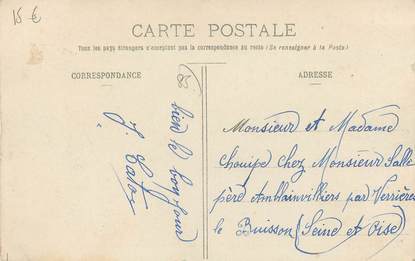 15 €
CARTE POSTALE
Tous les pays étrangers n'acceptent pas la correspondance au recto (Se renseigner à la Poste)
CORRESPONDANCE
ADRESSE
bien le bonjour
Monsieur et Madame
chouipe chez Monsieur Salle
père Amblainvilliers par Verrières
le Buisson (Seine et Oise)